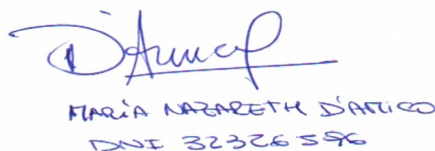 D'Amico
MARÍA NAZARETH D'AMICO
DNI 32326596